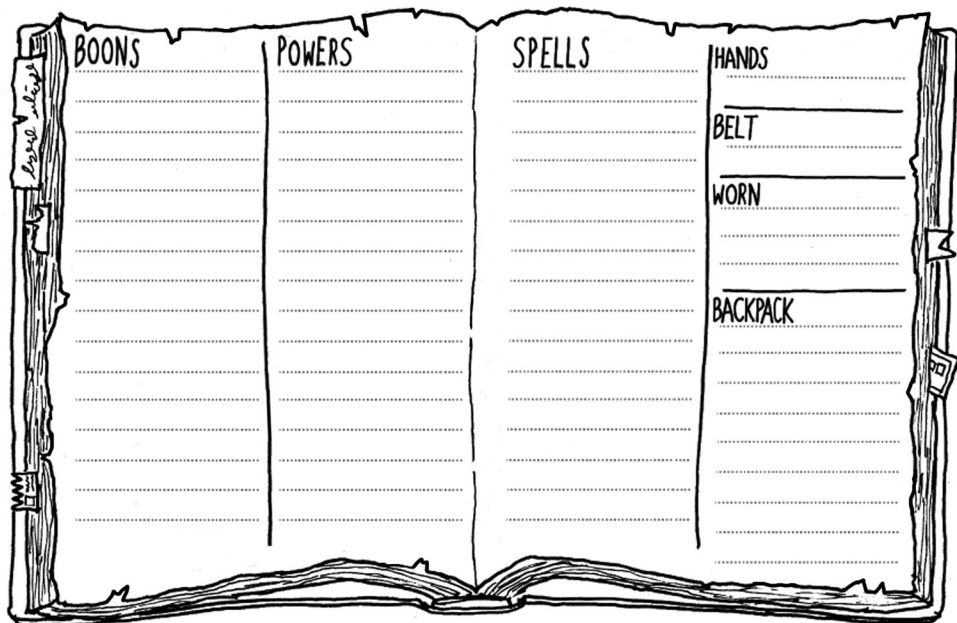 BOONS
POWERS
SPELLS
HANDS
BELT
WORN
BACKPACK